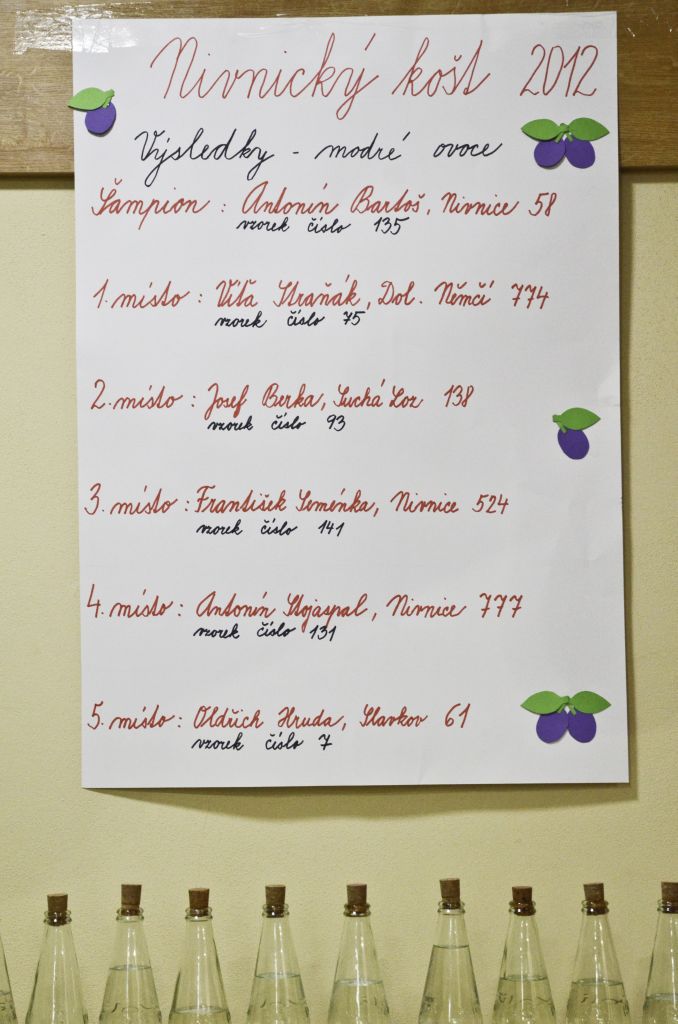 Nivnický košt 2012
Výsledky - modré ovoce
Šampion : Antonín Bartoš, Nivnice 58
vzorek číslo 135
1. místo : Víťa Straňák, Dol. Němčí 774
vzorek číslo 75
2. místo : Josef Berka, Suchá Loz 138
vzorek číslo 93
3. místo : František Seménka, Nivnice 524
vzorek číslo 141
4. místo : Antonín Stojaspal, Nivnice 777
vzorek číslo 131
5. místo : Oldřich Hruda, Slavkov 61
vzorek číslo 7